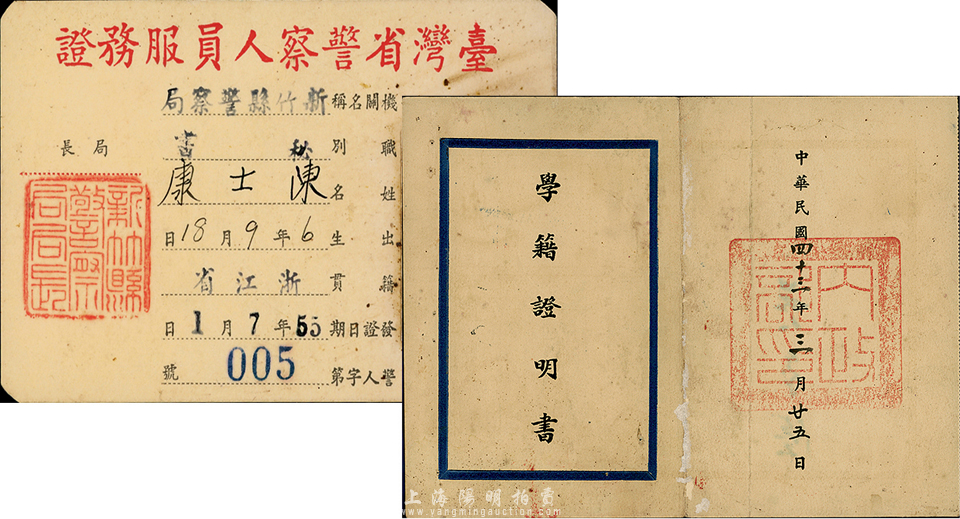 臺灣省警察人員服務證
機關名稱新竹縣警察局
職別秘書
姓名陳士康
出生6年9月18日
籍貫浙江省
發證日期55年7月1日
警人字第005號
局長
新竹縣警察局局長
學籍證明書
中華民國四十三年三月廿五日
內政部印
上海陽明拍賣
www.yangmingauction.com